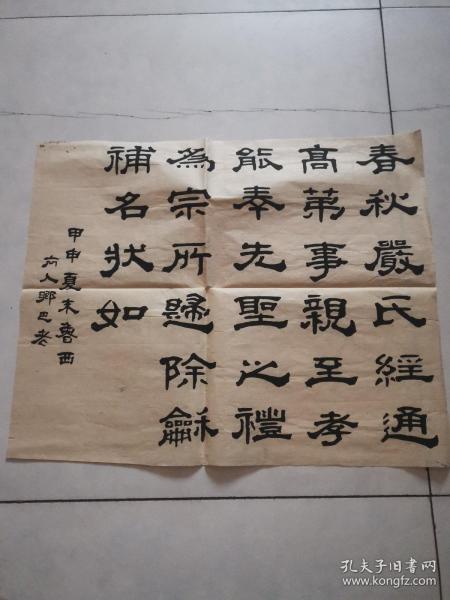 春秋嚴氏經通
高第事親至孝
能奉先聖之禮
為宗所歸除龢
補名狀如
甲申夏末魯西
孔夫子旧书网
www.kongfz.com